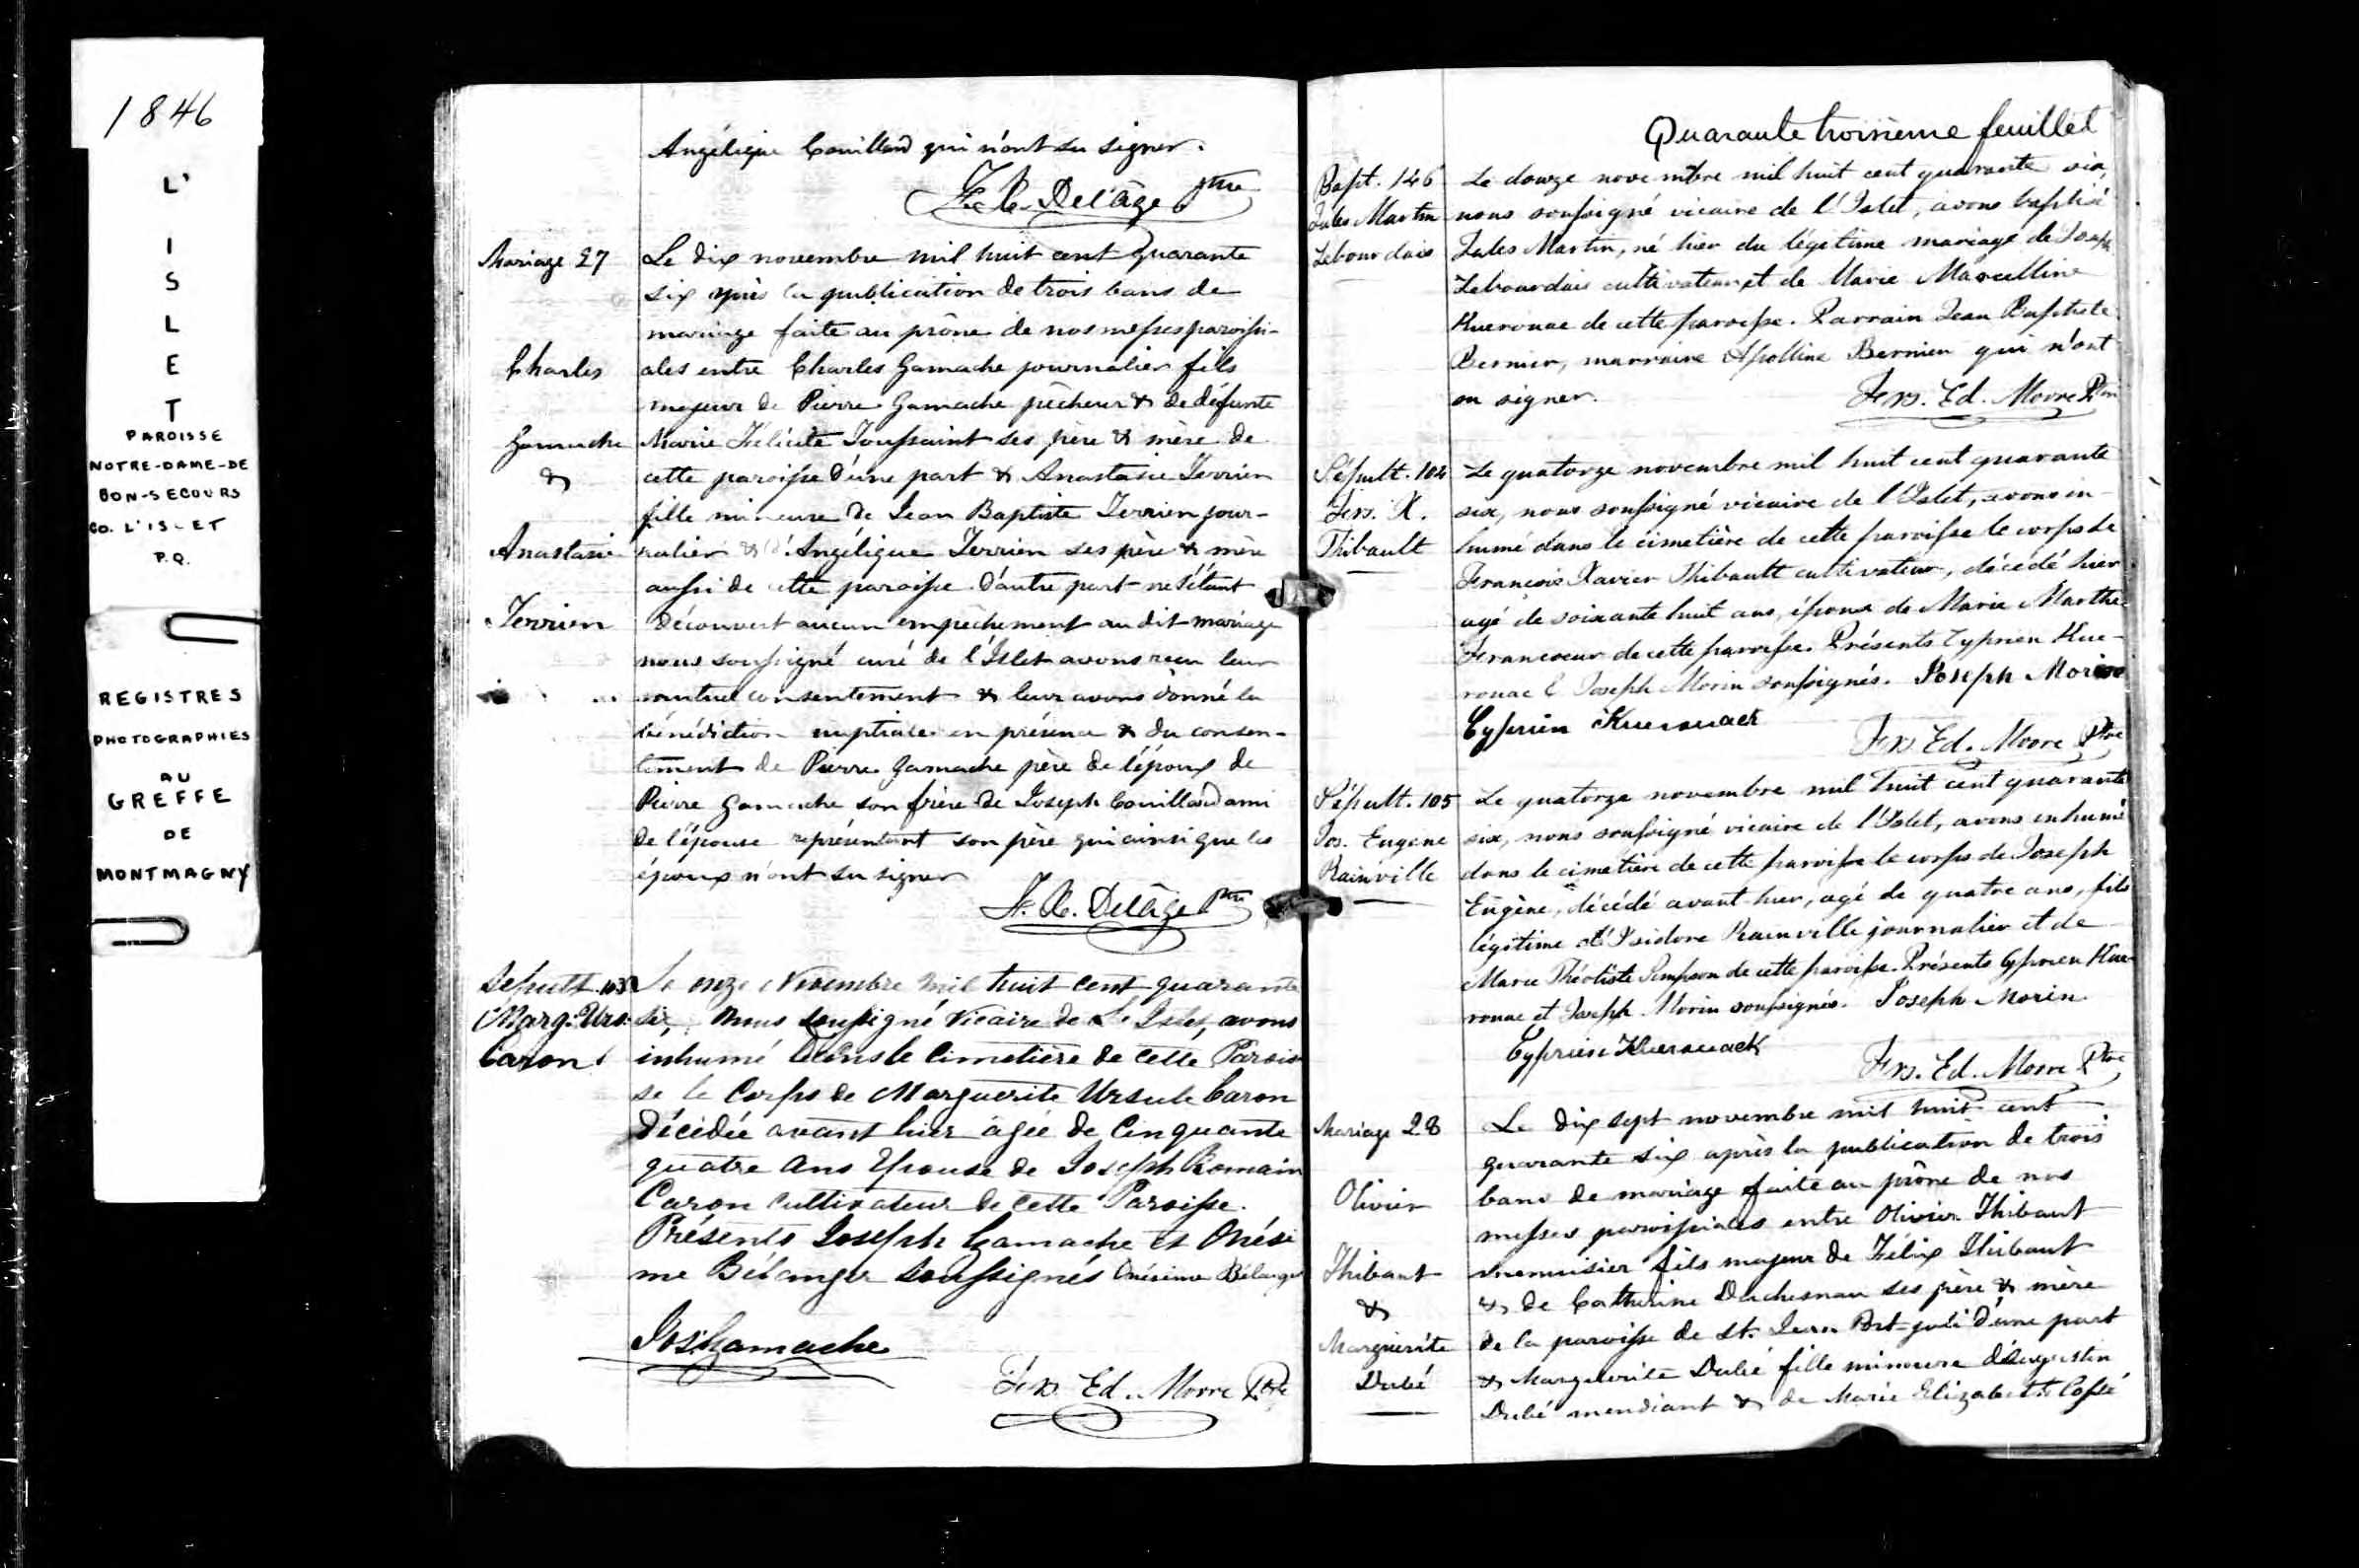 1846
L'
I
S
L
E
T
PAROISSE
NOTRE-DAME-DE
BON-SECOURS
CO. L'ISLET
P.Q.
REGISTRES
PHOTOGRAPHIES
AU
GREFFE
DE
MONTMAGNY
Angélique Couillard qui n'ont su signer.
F. X. Delâge Ptre
Mariage 27
Charles
Gamache
&
Anastasie
Terrien
Le dix novembre mil huit cent quarante
six après la publication de trois bans de
mariage faite au prône de nos messes paroissi-
ales entre Charles Gamache journalier fils
majeur de Pierre Gamache pêcheur & de défunte
Marie Félicité Toussaint ses père & mère de
cette paroisse d'une part & Anastasie Terrien
fille mineure de Jean Baptiste Terrien jour-
nalier & d'Angélique Terrien ses père & mère
aussi de cette paroisse d'autre part ne s'étant
découvert aucun empêchement au dit mariage
nous soussigné curé de l'Islet avons reçu leur
mutuel consentement & leur avons donné la
bénédiction nuptiale en présence & du consen-
tement de Pierre Gamache père de l'époux de
Pierre Gamache son frère de Joseph Couillard ami
de l'épouse représentant son père qui ainsi que les
époux n'ont su signer
F. X. Delâge Ptre
Sepult. 103
Marg. Urs.
Caron
Le onze Novembre mil huit cent quarante
six, Nous soussigné Vicaire de L'Islet, avons
inhumé dans le Cimetière de cette Parois
se le Corps de Marguerite Ursule Caron
décédée avant hier âgée de Cinquante
quatre ans Epouse de Joseph Romain
Caron Cultivateur de cette Paroisse.
Présents Joseph Gamache et Onési
me Bélanger soussignés Onésime Bélanger
Jos Gamache
Frs. Ed. Moore Ptre
Quarante troisieme feuillet
Bapt. 146
Jules Martin
Lebourdais
Le douze novembre mil huit cent quarante six,
nous soussigné vicaire de l'Islet, avons baptisé
Jules Martin, né hier du légitime mariage de Joseph
Lebourdais cultivateur et de Marie Marcelline
Kuerouac de cette paroisse. Parrain Jean Baptiste
Bernier, marraine Apolline Bernier qui n'ont
su signer.
Frs. Ed. Moore Ptre
Sépult. 104
Frs. X.
Thibault
Le quatorze novembre mil huit cent quarante
six, nous soussigné vicaire de l'Islet, avons in-
humé dans le cimetière de cette paroisse le corps de
François Xavier Thibault cultivateur, décédé hier
agé de soixante huit ans, époux de Marie Marthe
Francoeur de cette paroisse. Présents Cyprien Kue-
rouac & Joseph Morin soussignés. Joseph Morin
Cyprien Kuerouack
Frs Ed. Moore Ptre
Sépult. 105
Jos. Eugene
Rainville
Le quatorze novembre mil huit cent quarante
six, nous soussigné vicaire de l'Islet, avons inhumé
dans le cimetière de cette paroisse le corps de Joseph
Eugène, décédé avant-hier, agé de quatre ans, fils
légitime d'Isidore Rainville journalier et de
Marie Théotiste Simpson de cette paroisse. Présents Cyprien Kue-
rouac et Joseph Morin soussignés. Joseph Morin
Cyprien Kuerouack
Frs. Ed. Moore Ptre
Mariage 28
Olivier
Thibaut
&
Marguerite
Dubé
Le dix sept novembre mil huit cent
quarante six après la publication de trois
bans de mariage faite au prône de nos
messes paroissiales entre Olivier Thibaut
menuisier fils majeur de Félix Thibaut
& de Catherine Duchesnau ses père & mère
de la paroisse de St. Jean Port-joli d'une part
& Marguerite Dubé fille mineure d'Augustin
Dubé mendiant & de Marie Elizabeth Cossé